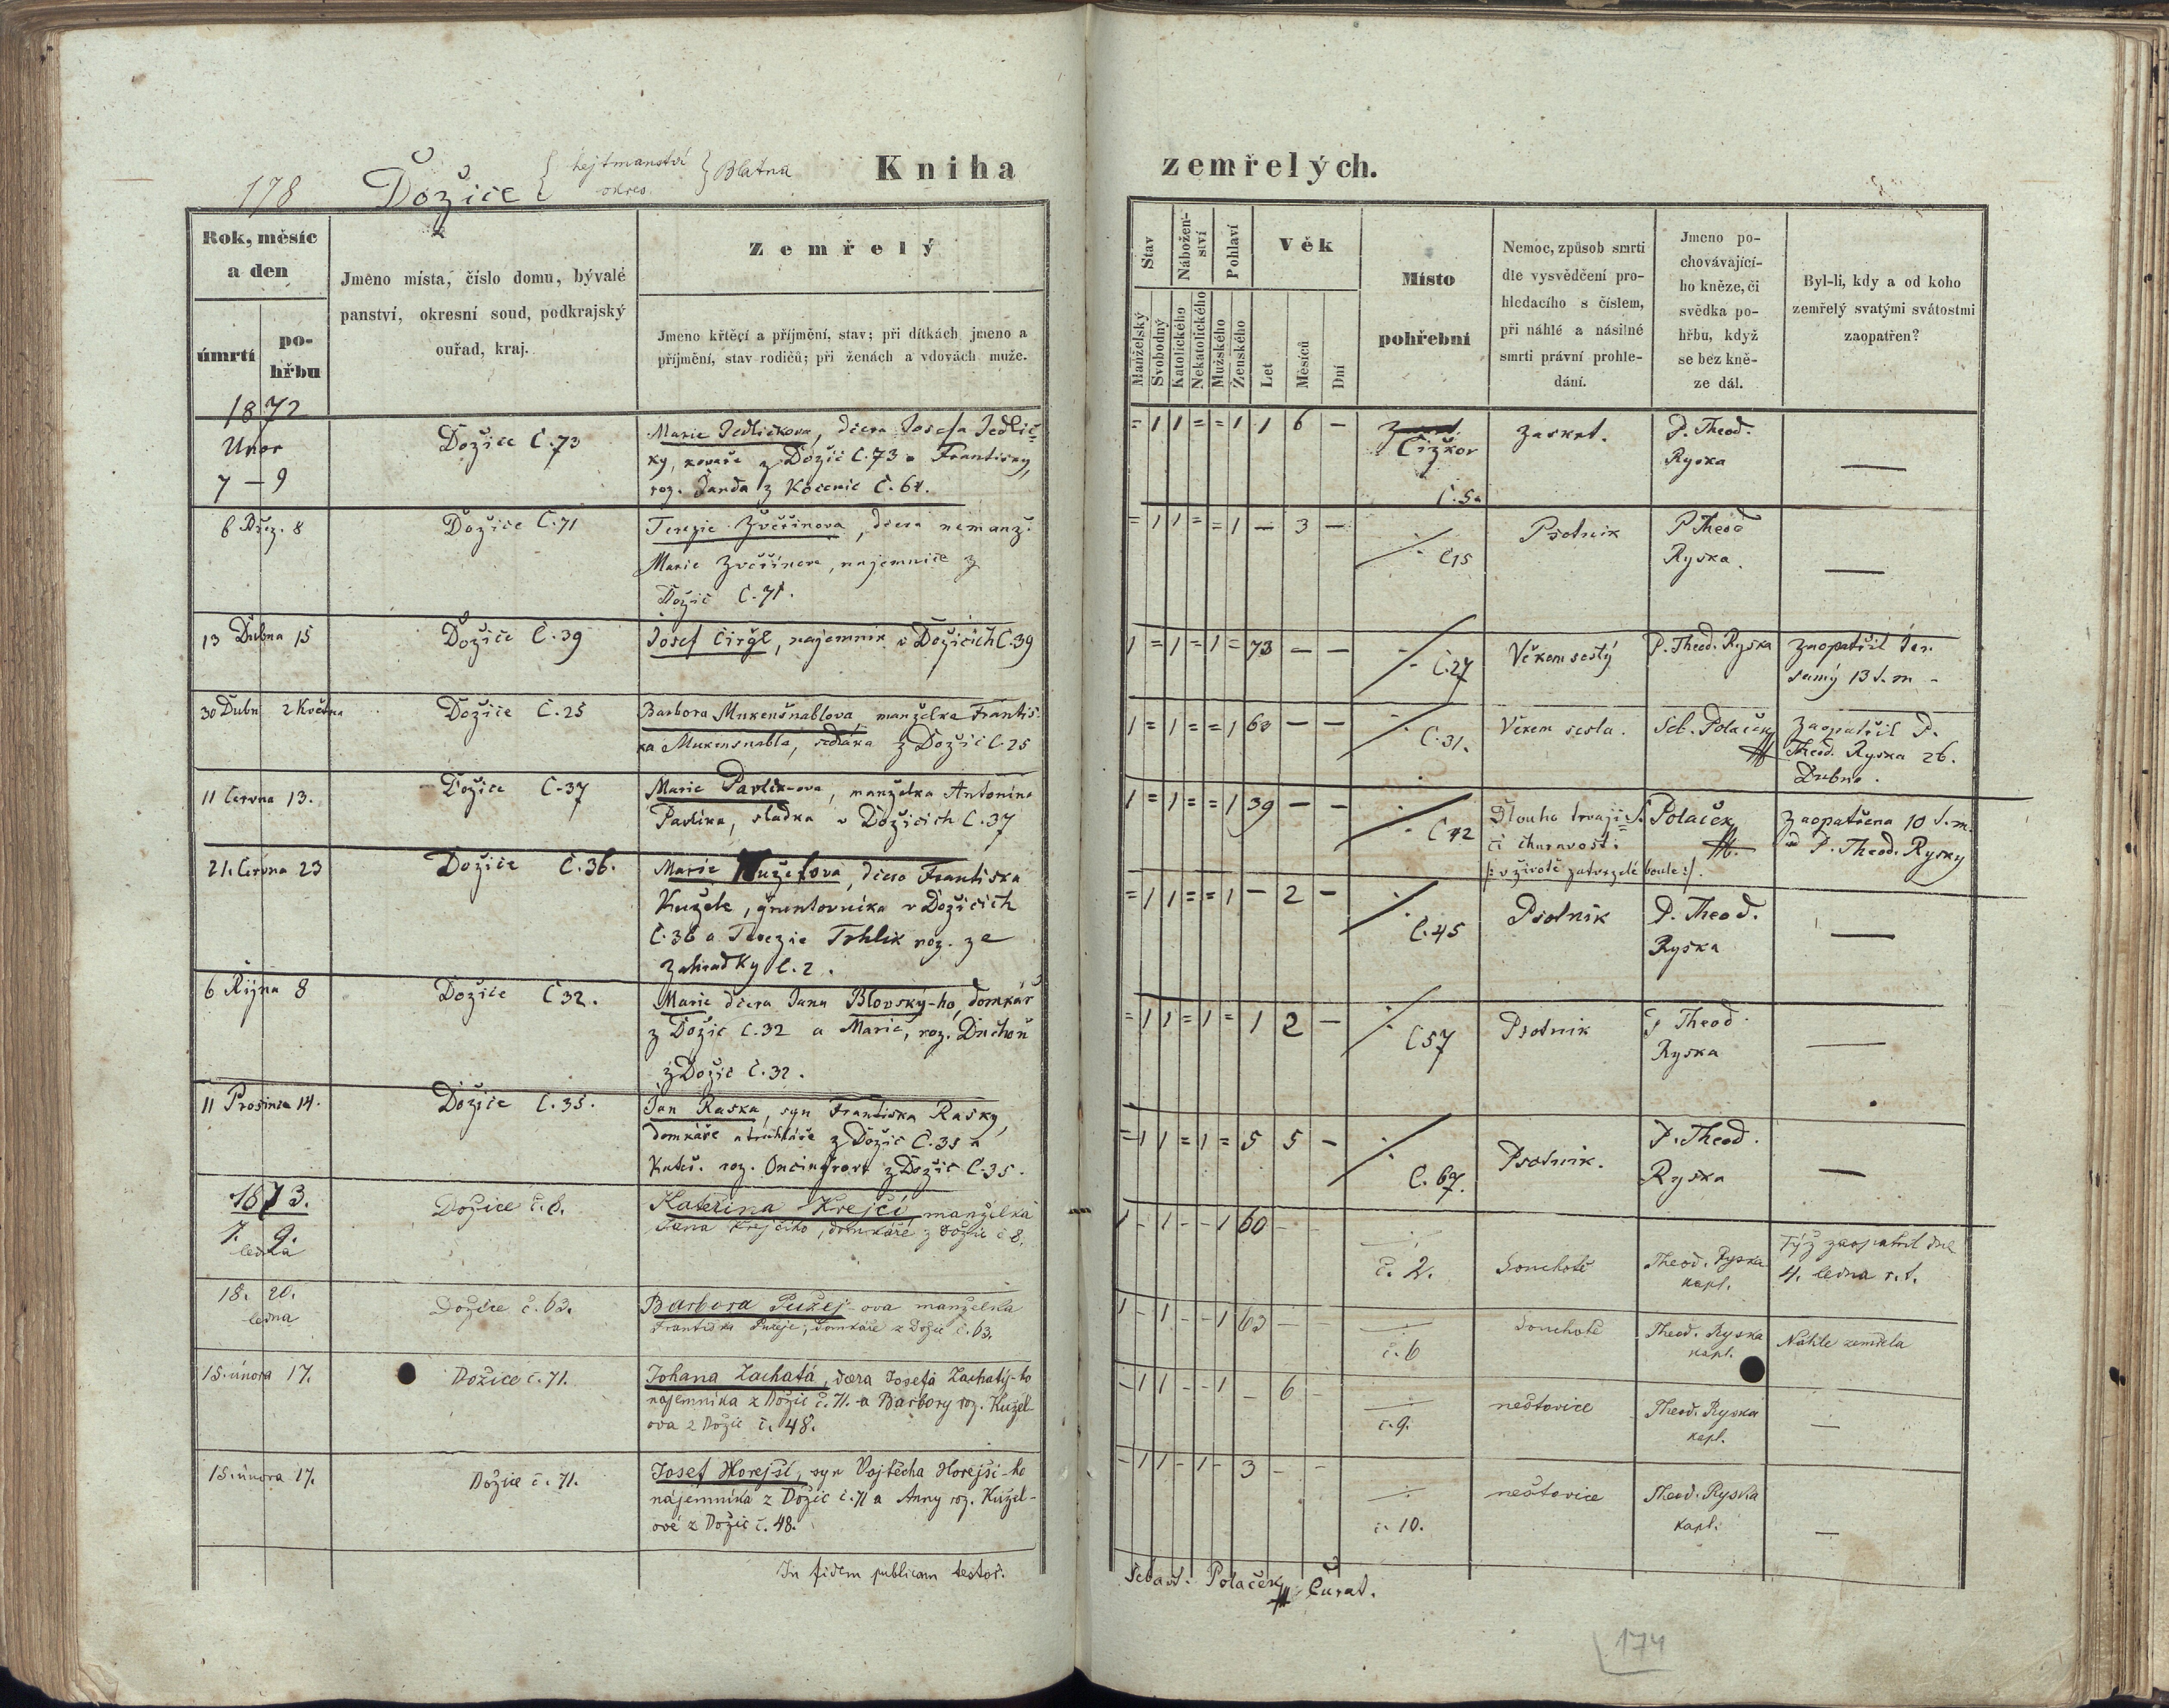 178 Dožice { hejtmanství okres } Blatná
Kniha zemřelých.
Rok, měsíc a den
úmrtí
pohřbu
Jméno místa, číslo domu, bývalé
panství, okresní soud, podkrajský
ouřad, kraj.
Zemřelý
Jmeno křtěcí a příjmění, stav; při dítkách jmeno a
příjmění, stav rodičů; při ženách a vdovách muže.
Stav
Nábožen-
ství
Pohlaví
Věk
Manželský
Svobodný
Katolického
Nekatolického
Mužského
Ženského
Let
Měsíců
Dní
Místo
pohřební
Nemoc, způsob smrti
dle vysvědčení pro-
hledacího s číslem,
při náhlé a násilné
smrti právní prohle-
dání.
Jmeno po-
chovávající-
ho kněze, či
svědka po-
hřbu, když
se bez kně-
ze dál.
Byl-li, kdy a od koho
zemřelý svatými svátostmi
zaopatřen?
1872
Únor
7 – 9
Dožice Č. 73
Marie Jedličkova, dcera Josefa Jedlič-
ky, kováře z Dožic Č. 73 a Františky,
roz. Janda z Kocenic Č. 64.
= 1 1 = = 1 1 6 –
Čížkov
Č. 5a
Zaskrt.
P. Theod.
Ryska
—
6 Břez. 8
Dožice Č. 71
Terezie Zvěřinova, dcera nemanž.
Marie Zvěřinova, najemnice z
Dožic Č. 71.
= 1 1 = = 1 – 3 –
÷
Č 15
Psotnik
P Theod
Ryska.
—
13 Dubna 15
Dožice Č. 39
Josef Čirgl, najemník v Dožicích Č. 39
1 = 1 = 1 = 73 – –
÷
Č. 27
Věkem sestý
P. Theod. Ryska
Zaopatřil Jer.
samý 13 t. m -
30 Dubn 2 Května
Dožice Č. 25
Barbora Mukenšnablova, manželka Františ-
ka Mukensnabla, sedláka z Dožic Č. 25
1 = 1 = = 1 63 – –
÷
Č. 31.
Věkem sesla.
Seb. Polaček
Zaopatřil P.
Theod. Ryska 26.
Dubna.
11 Června 13.
Dožice Č. 37
Marie Pavlik-ova, manželka Antonína
Pavlíka, sladka v Dožicích Č. 37
1 = 1 = = 1 39 – –
÷
Č 42
Dlouho trvají-
cí churavost:
/: v životě zatvrzelé boule :/.
S. Polaček
Zaopatřena 10 t. m.
od P. Theod. Rysky
21. Června 23
Dožice Č. 36.
Marie Kuželova, dcera Františka
Kužele, gruntovníka v Dožicích
Č. 36 a Terezie Trhlik roz. ze
Zahradky Č. 2.
= 1 1 = = 1 – 2 –
÷
Č. 45
Psotnik
P. Theod.
Ryska
—
6 Října 8
Dožice Č 32.
Marie dcera Jana Blovský-ho, domkář
z Dožic Č. 32 a Marie, roz. Duchoň
z Dožic Č. 32.
= 1 1 = 1 = 1 2 –
÷
Č 57
Psotnik
P Theod.
Ryska
—
11 Prosince 14.
Dožice Č. 35.
Jan Raska, syn Františka Rasky,
domkáře a truhláře z Dožic Č. 35 a
Kateř. roz. z Dožic Č. 35.
= 1 1 = 1 = 5 5 –
÷
Č. 67.
Psotnik.
P. Theod.
Ryska
—
1873.
7. 9.
ledna
Dožice č. 8.
Kateřina Krejčí manželka
Jana Krejčího, domkáře z Dožic č 8.
1 – 1 – – 1 60 –
÷
č. 2.
Souchotě
Theod. Ryska
kapl.
Týž zaopatřil dne
4. ledna t. r.
18. 20.
ledna
Dožice č. 63.
Barbora Pužej-ova manželka
Františka Pužeje, domkáře z Dožic č. 63.
1 – 1 – – 1 63 – –
÷
č. 6
Souchotě
Theod. Ryska
kapl.
Náhle zemřela
15. února 17.
Dožice č. 71.
Johana Zachatá, dcera Josefa Zachatý-ho
nájemníka z Dožic č. 71. a Barbory roz. Kužel-
ova z Dožic č. 48.
– 1 1 – – 1 – 6 –
÷
č. 9.
neštovice
Theod. Ryska
kapl.
—
15. února 17.
Dožice č. 71.
Josef Horejší, syn Vojtěcha Horejší-ho
nájemníka z Dožic č. 71 a Anny roz. Kužel-
ové z Dožic č. 48.
– 1 1 – 1 – 3 – –
÷
č. 10.
neštovice
Theod. Ryska
kapl.
—
In fidem publicam testor.
Sebast. Polaček Curat.
174